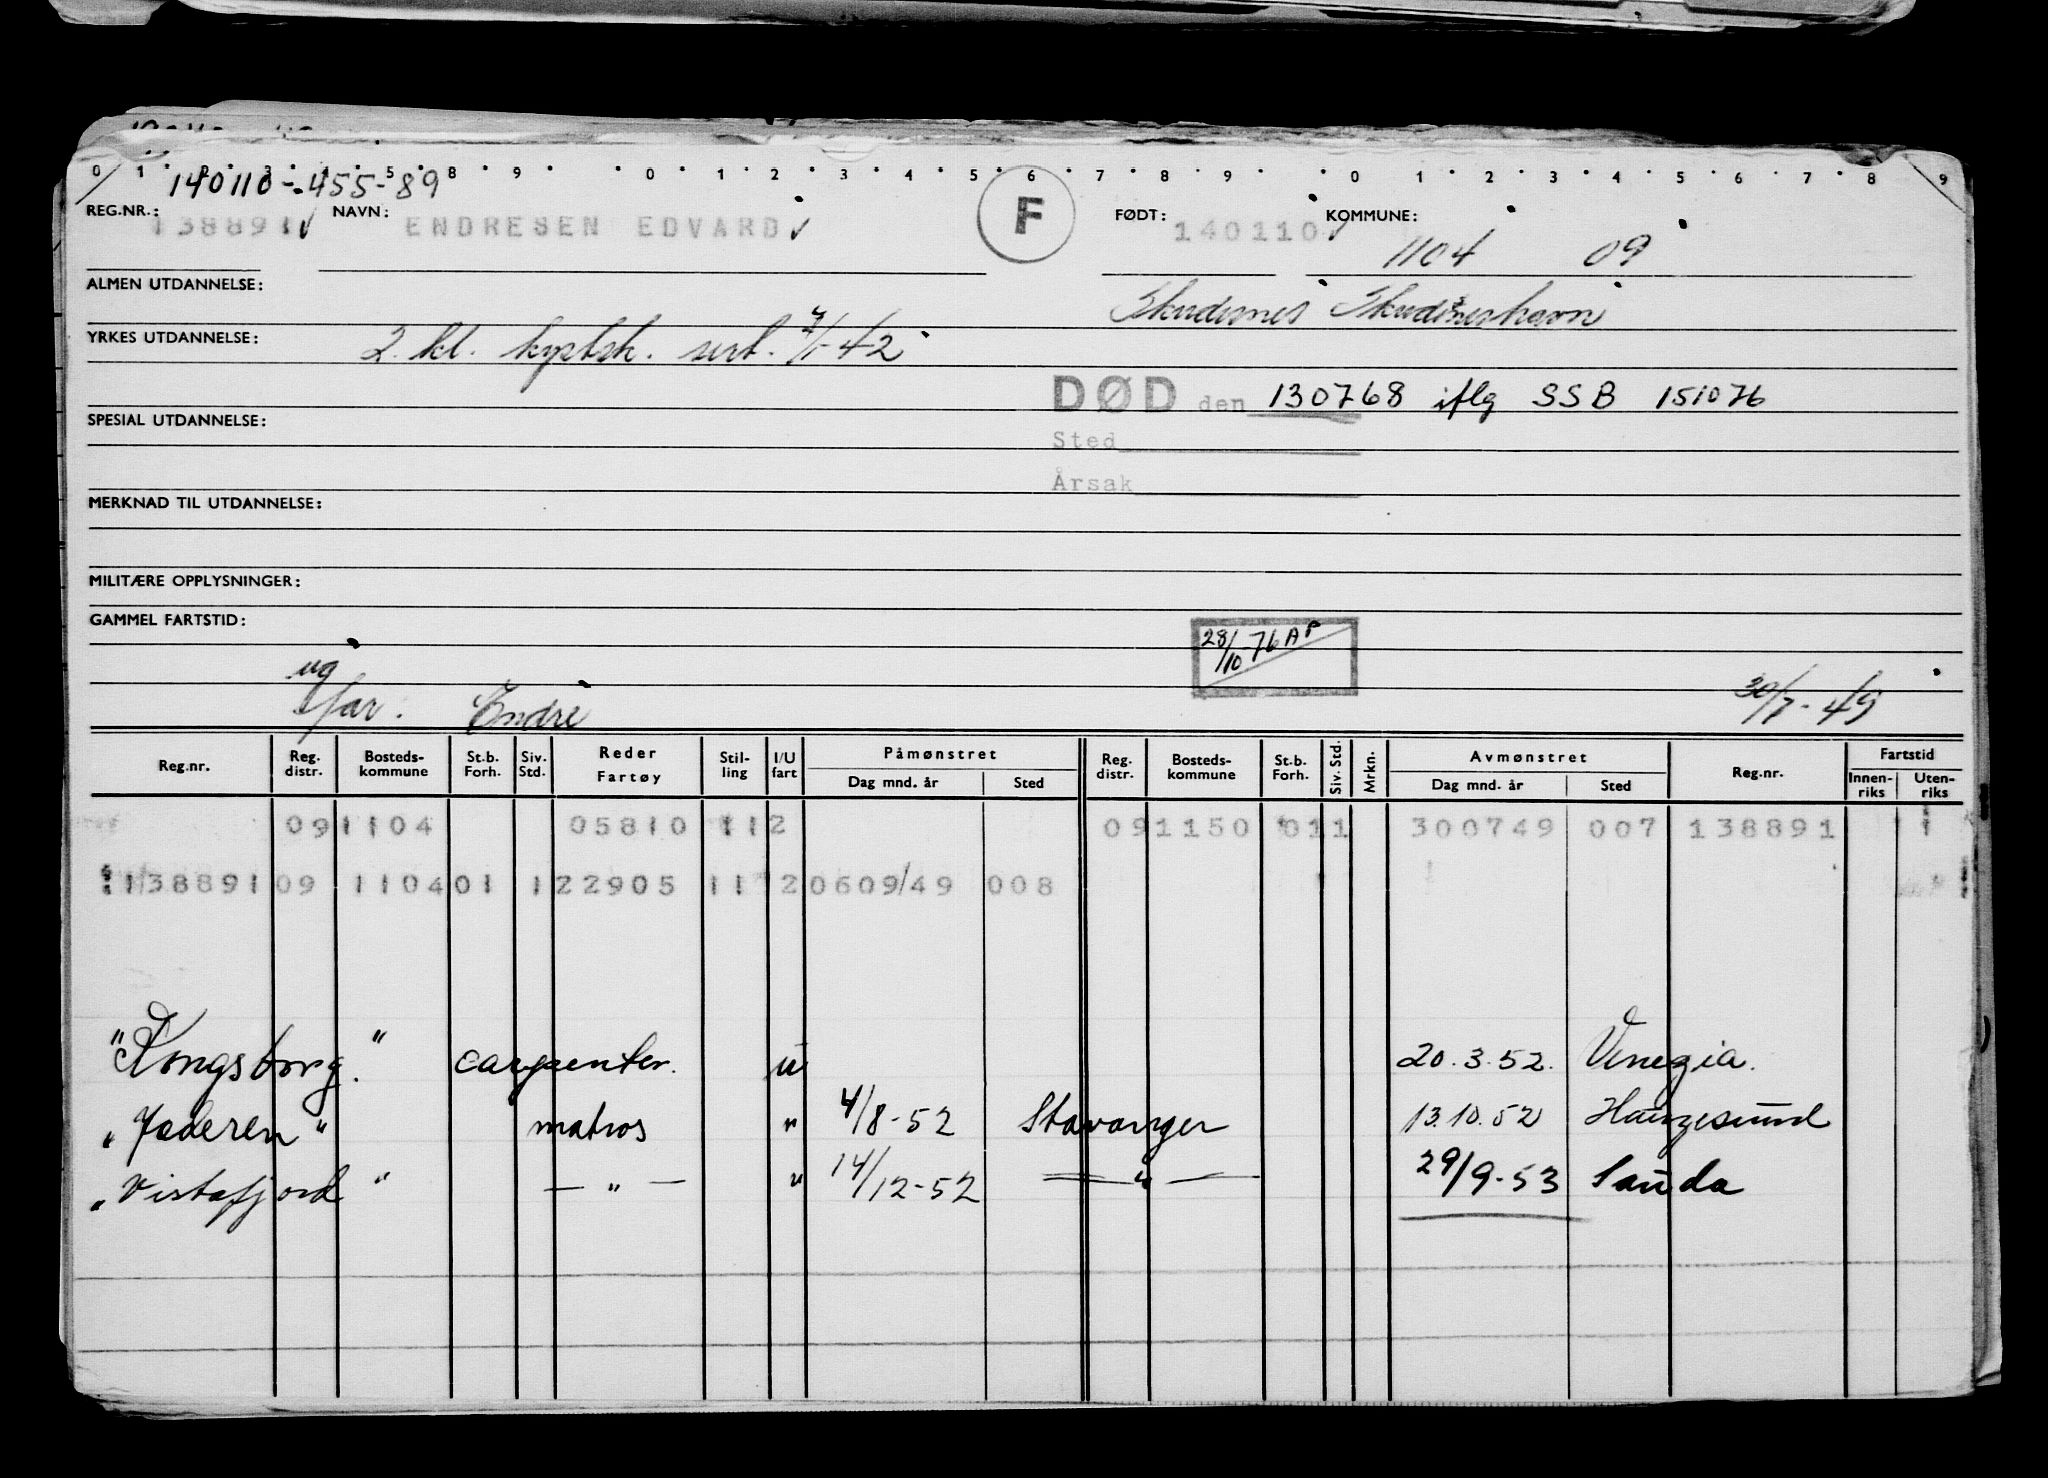 0 1 2 3 4 5 8 9 0 1 2 3 4 5 6 7 8 9 0 1 2 3 4 5 6 7 8 9
140110-455-89
REG.NR.: 138891 ✓ NAVN: ENDRESEN EDVARD ✓ F FØDT: 140110 ✓ KOMMUNE:
1104 09
ALMEN UTDANNELSE: Skudesnes Skudeneshavn
YRKES UTDANNELSE: 2. kl. kystsk. sert. 7/1-42
DØD den 130768 iflg SSB 151076
SPESIAL UTDANNELSE:
Sted
Årsak
MERKNAD TIL UTDANNELSE:
MILITÆRE OPPLYSNINGER:
GAMMEL FARTSTID:
28/10-76 AP
ug
far: Endre 30/7-49
Reg.nr. Reg. distr. Bosteds-kommune St.b. Forh. Siv. Std. Reder Fartøy Stil-ling I/U fart Påmønstret Dag mnd. år Sted Reg. distr. Bosteds-kommune St.b. Forh. Siv. Std. Mrkn. Avmønstret Dag mnd. år Sted Reg.nr. Fartstid Innen-riks Uten-riks
09 1104 05810 11 2 09 1150 01 1 300749 007 138891 1
138891 09 1104 01 1 22905 11 2 0609/49 008
"Kongsborg." carpenter. u 20.3.52. Venezia.
"Jæderen" matros " 4/8-52 Stavanger 13.10.52 Haugesund
"Vistafjord" — " — " 14/12-52 — " — 29/9-53 Sauda